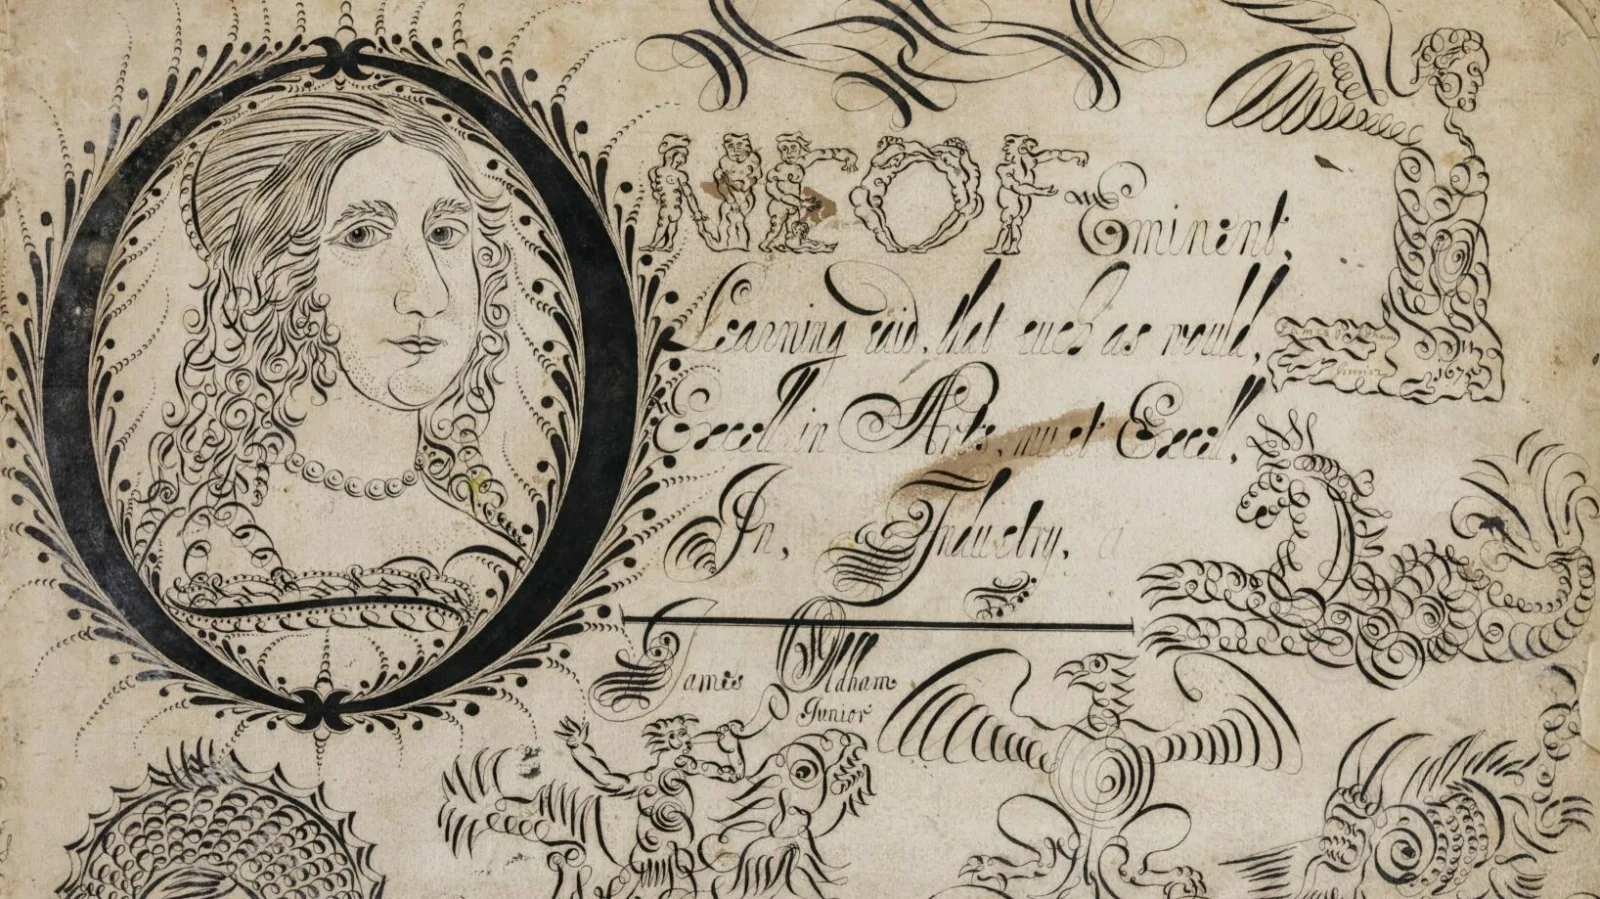 ONE OF Eminent,
Learning said, that such as would,
Excell in Arts, must Excel,
In, Industry,
James Oldham
Junior
James
Junior 1675